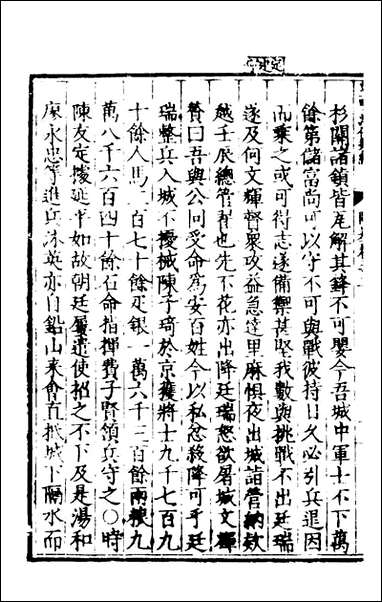 杉關諸鎮皆瓦解其鋒不可嬰今吾城中軍士不下萬
餘第儲富尚可以守不可與戰彼持日久必引兵退因
而乘之或可得志遂備禦甚堅我數與挑戰不出廷瑞
遂及何文輝督眾攻益急達里麻惧夜出城詣營納欵
越壬辰總管翟也先不花亦出降廷瑞怒欲屠城文輝
贊曰吾與公同受命為安百姓今以私忿殺降可乎廷
瑞整兵入城不擾械陳子琦於京獲將士九千七百九
十餘人馬一百七十餘疋銀一萬六千二百餘兩糧九
萬八千六百四十餘石命指揮費子賢領兵守之〇時
陳友定據延平如故朝廷屢遣使招之不下及是湯和
廖永忠等進兵沐英亦自鉛山来會直抵城下隔水而